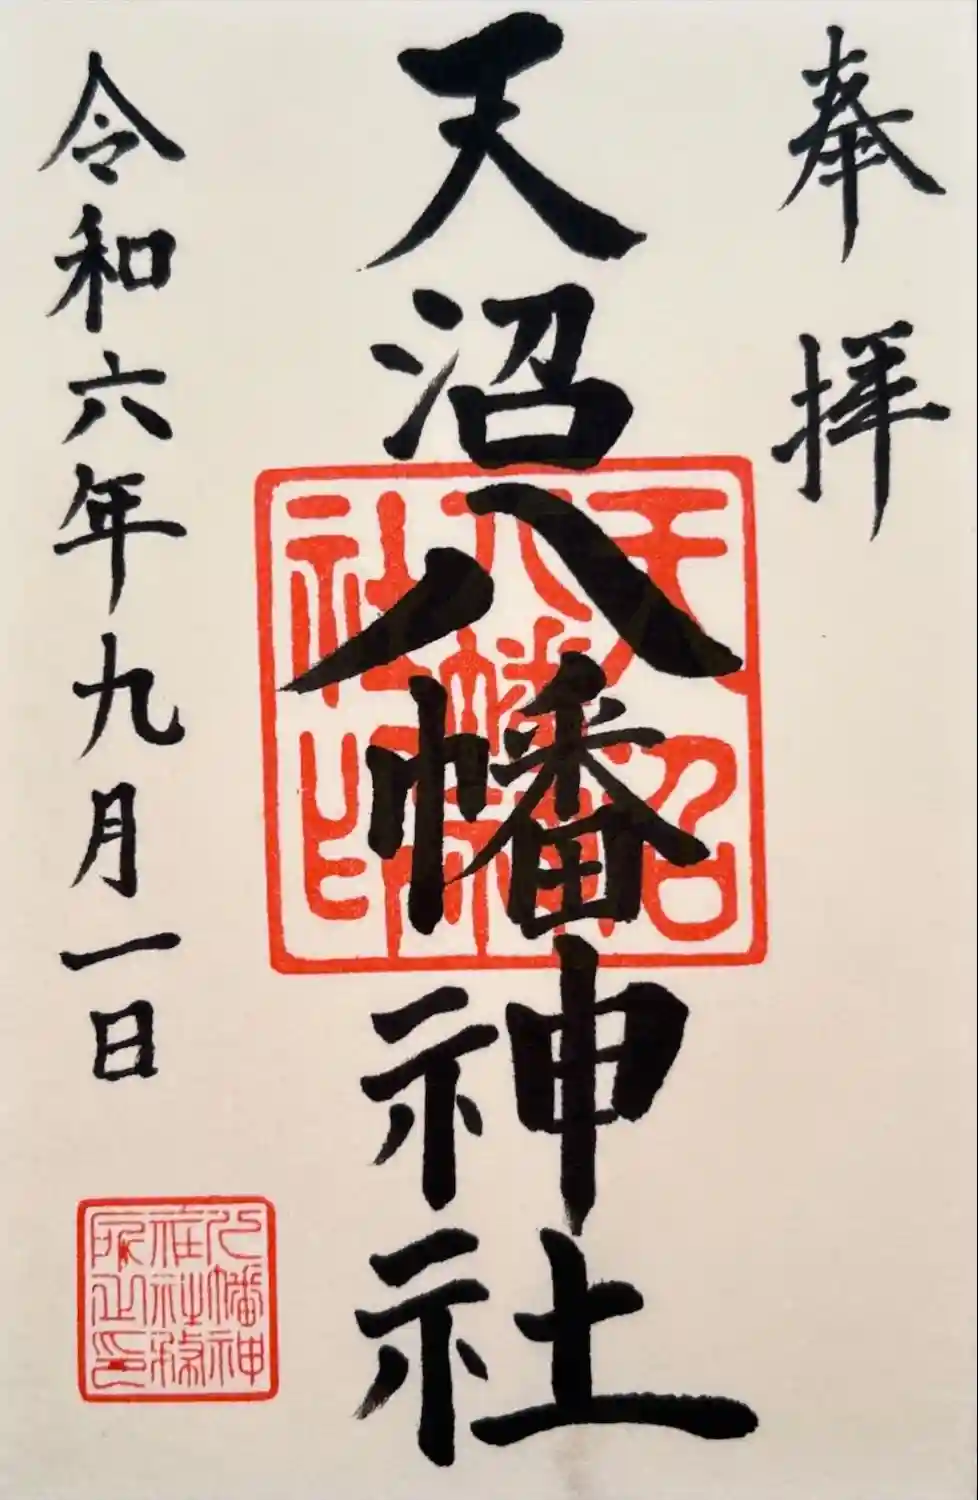 奉拝
天沼八幡神社
天沼八幡神社印
令和六年九月一日